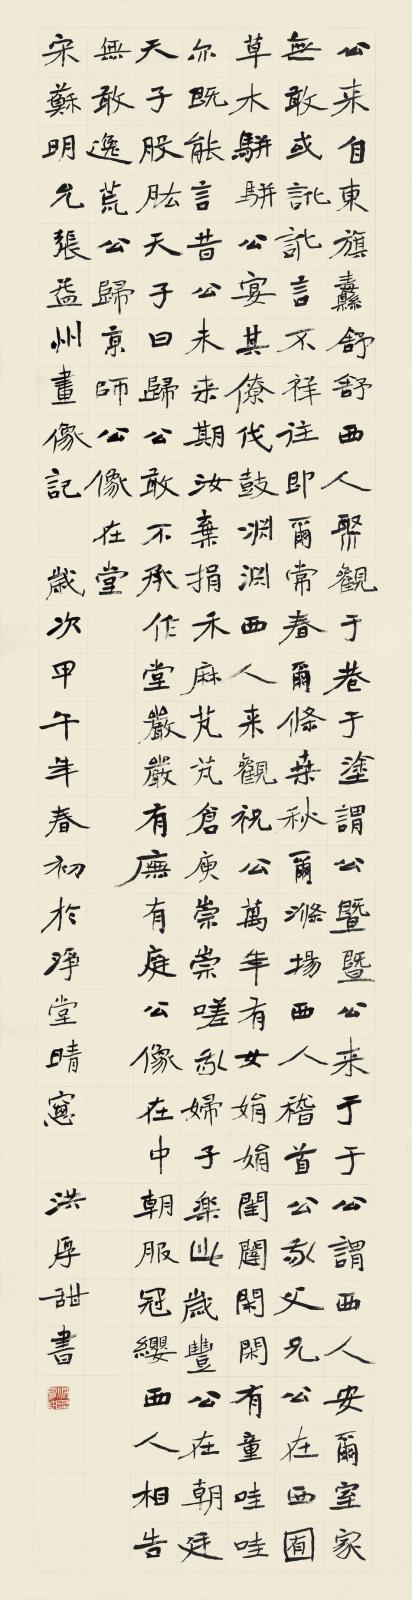 公来自東旗纛舒舒西人聚觀于巷于塗謂公暨暨公来于于公謂西人安爾室家
無敢或訛訛言不祥往即爾常春爾條桑秋爾滌場西人稽首公我父兄公在西囿
草木駢駢公宴其僚伐鼓淵淵西人来觀祝公萬年有女娟娟閨闥閑閑有童哇哇
尔既能言昔公未来期汝棄捐禾麻芃芃倉庾崇崇嗟我婦子樂此歲豐公在朝廷
天子股肱天子曰歸公敢不承作堂嚴嚴有廡有庭公像在中朝服冠纓西人相告
無敢逸荒公歸京師公像在堂
宋蘇明允張益州畫像記 歲次甲午年春初於淨堂晴窓 洪厚甜書